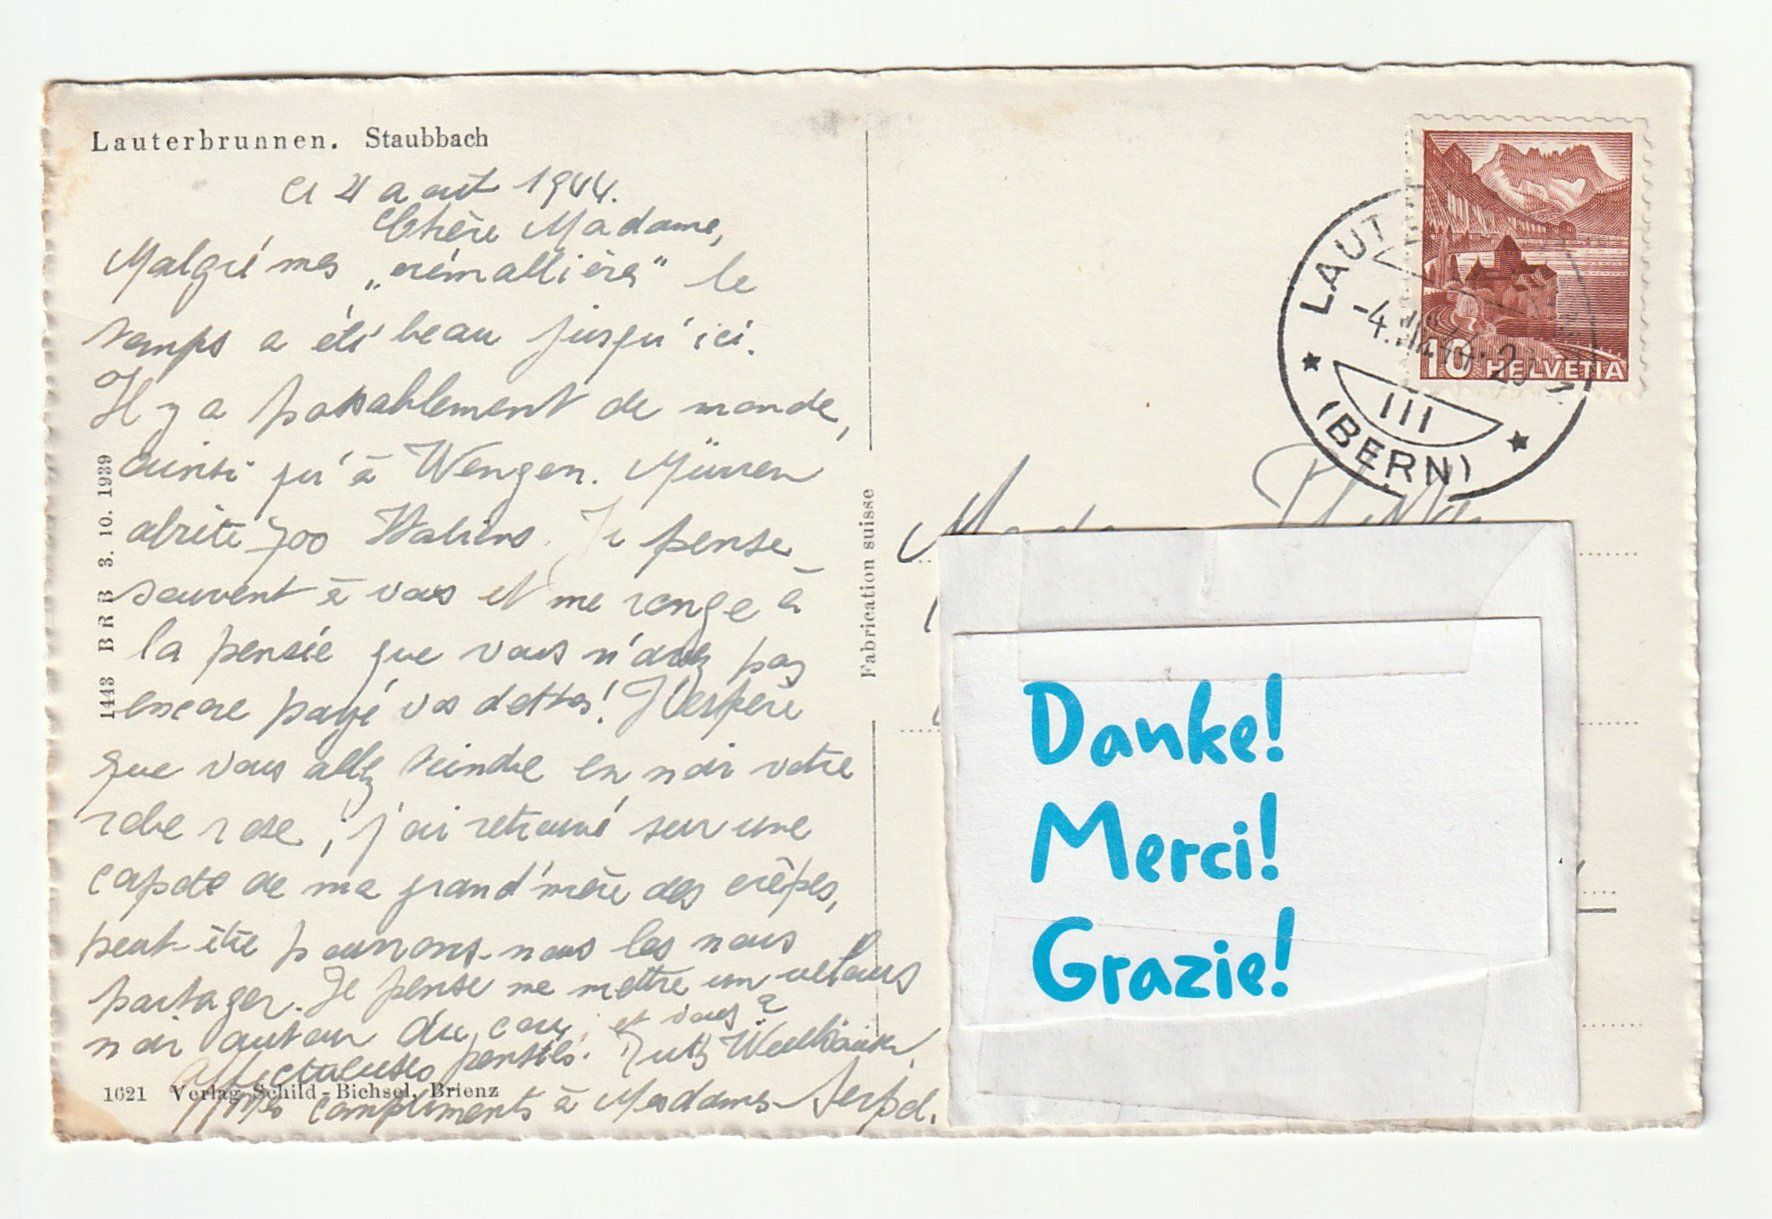 Lauterbrunnen. Staubbach
4 août 1944.
Chère Madame,
Malgré mes „crémallière" le
temps a été beau jusqu'ici.
Il y a passablement de monde,
ainsi qu'à Wengen. Mürren
abrite 700 Italiens. Je pense
souvent à vous et me ronge à
la pensée que vous n'avez pas
encore payé vos dettes! J'espère
que vous allez teindre en noir votre
robe rose, j'ai retrouvé sur une
capote de ma grand'mère des crêpes,
peut-être pourrons-nous les nous
partager. Je pense me mettre un velours
noir autour du cou, et vous?
Affectueuses pensées. Ruth
Mes compliments à Madame
1621 Verlag Schild-Bichsel, Brienz
1443 BRB 3. 10. 1939
Fabrication suisse
LAUT
-4. VIII 44
III
(BERN)
10 HELVETIA
Danke!
Merci!
Grazie!